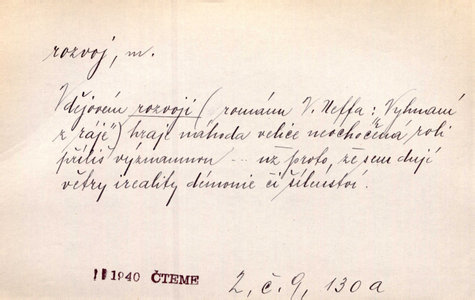 rozvoj, m.
V dějovém rozvoji (románu V. Neffa: „Vyhnaní
z ráje“) hraje náhoda velice neochočená roli
příliš významnou ... už proto, že sem dují
větry ireality démonie či šílenství.
1940 ČTEME
2, č. 9, 130a